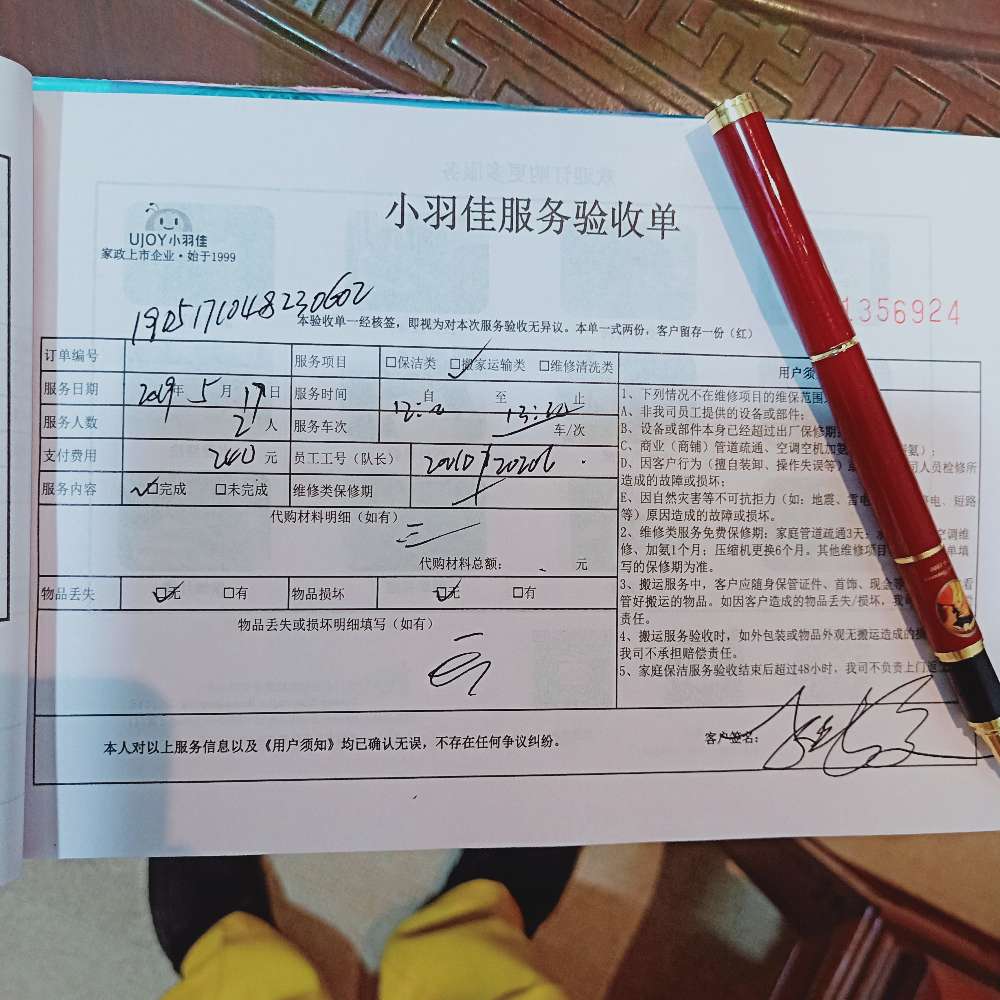 小羽佳服务验收单
UJOY小羽佳
家政上市企业·始于1999
1905171048230602
1356924
本验收单一经核签，即视为对本次服务验收无异议。本单一式两份，客户留存一份（红）
订单编号 服务项目 □保洁类 □搬家运输类 □维修清洗类
服务日期 2019年 5月 17日 服务时间 自 至 止
服务人数 2人 服务车次 车/次
支付费用 240元 员工工号（队长）
服务内容 □完成 □未完成 维修类保修期
代购材料明细（如有）
代购材料总额： 元
物品丢失 □无 □有 物品损坏 □无 □有
物品丢失或损坏明细填写（如有）
无
用户须
1、下列情况不在维修项目的维保范围
A、非我司员工提供的设备或部件；
B、设备或部件本身已经超过出厂保修期
C、商业（商铺）管道疏通、空调空机加氨
D、因客户行为（擅自装卸、操作失误等） 司人员检修所
造成的故障或损坏；
E、因自然灾害等不可抗拒力（如：地震、雷电 停电、短路
等）原因造成的故障或损坏。
2、维修类服务免费保修期：家庭管道疏通3天； 空调维
修、加氨1个月；压缩机更换6个月。其他维修项目 单填
写的保修期为准。
3、搬运服务中，客户应随身保管证件、首饰、现金等 看
管好搬运的物品。如因客户造成的物品丢失/损坏，我司
责任。
4、搬运服务验收时，如外包装或物品外观无搬运造成的损
我司不承担赔偿责任。
5、家庭保洁服务验收结束后超过48小时，我司不负责上门返
本人对以上服务信息以及《用户须知》均已确认无误，不存在任何争议纠纷。
客户签名：